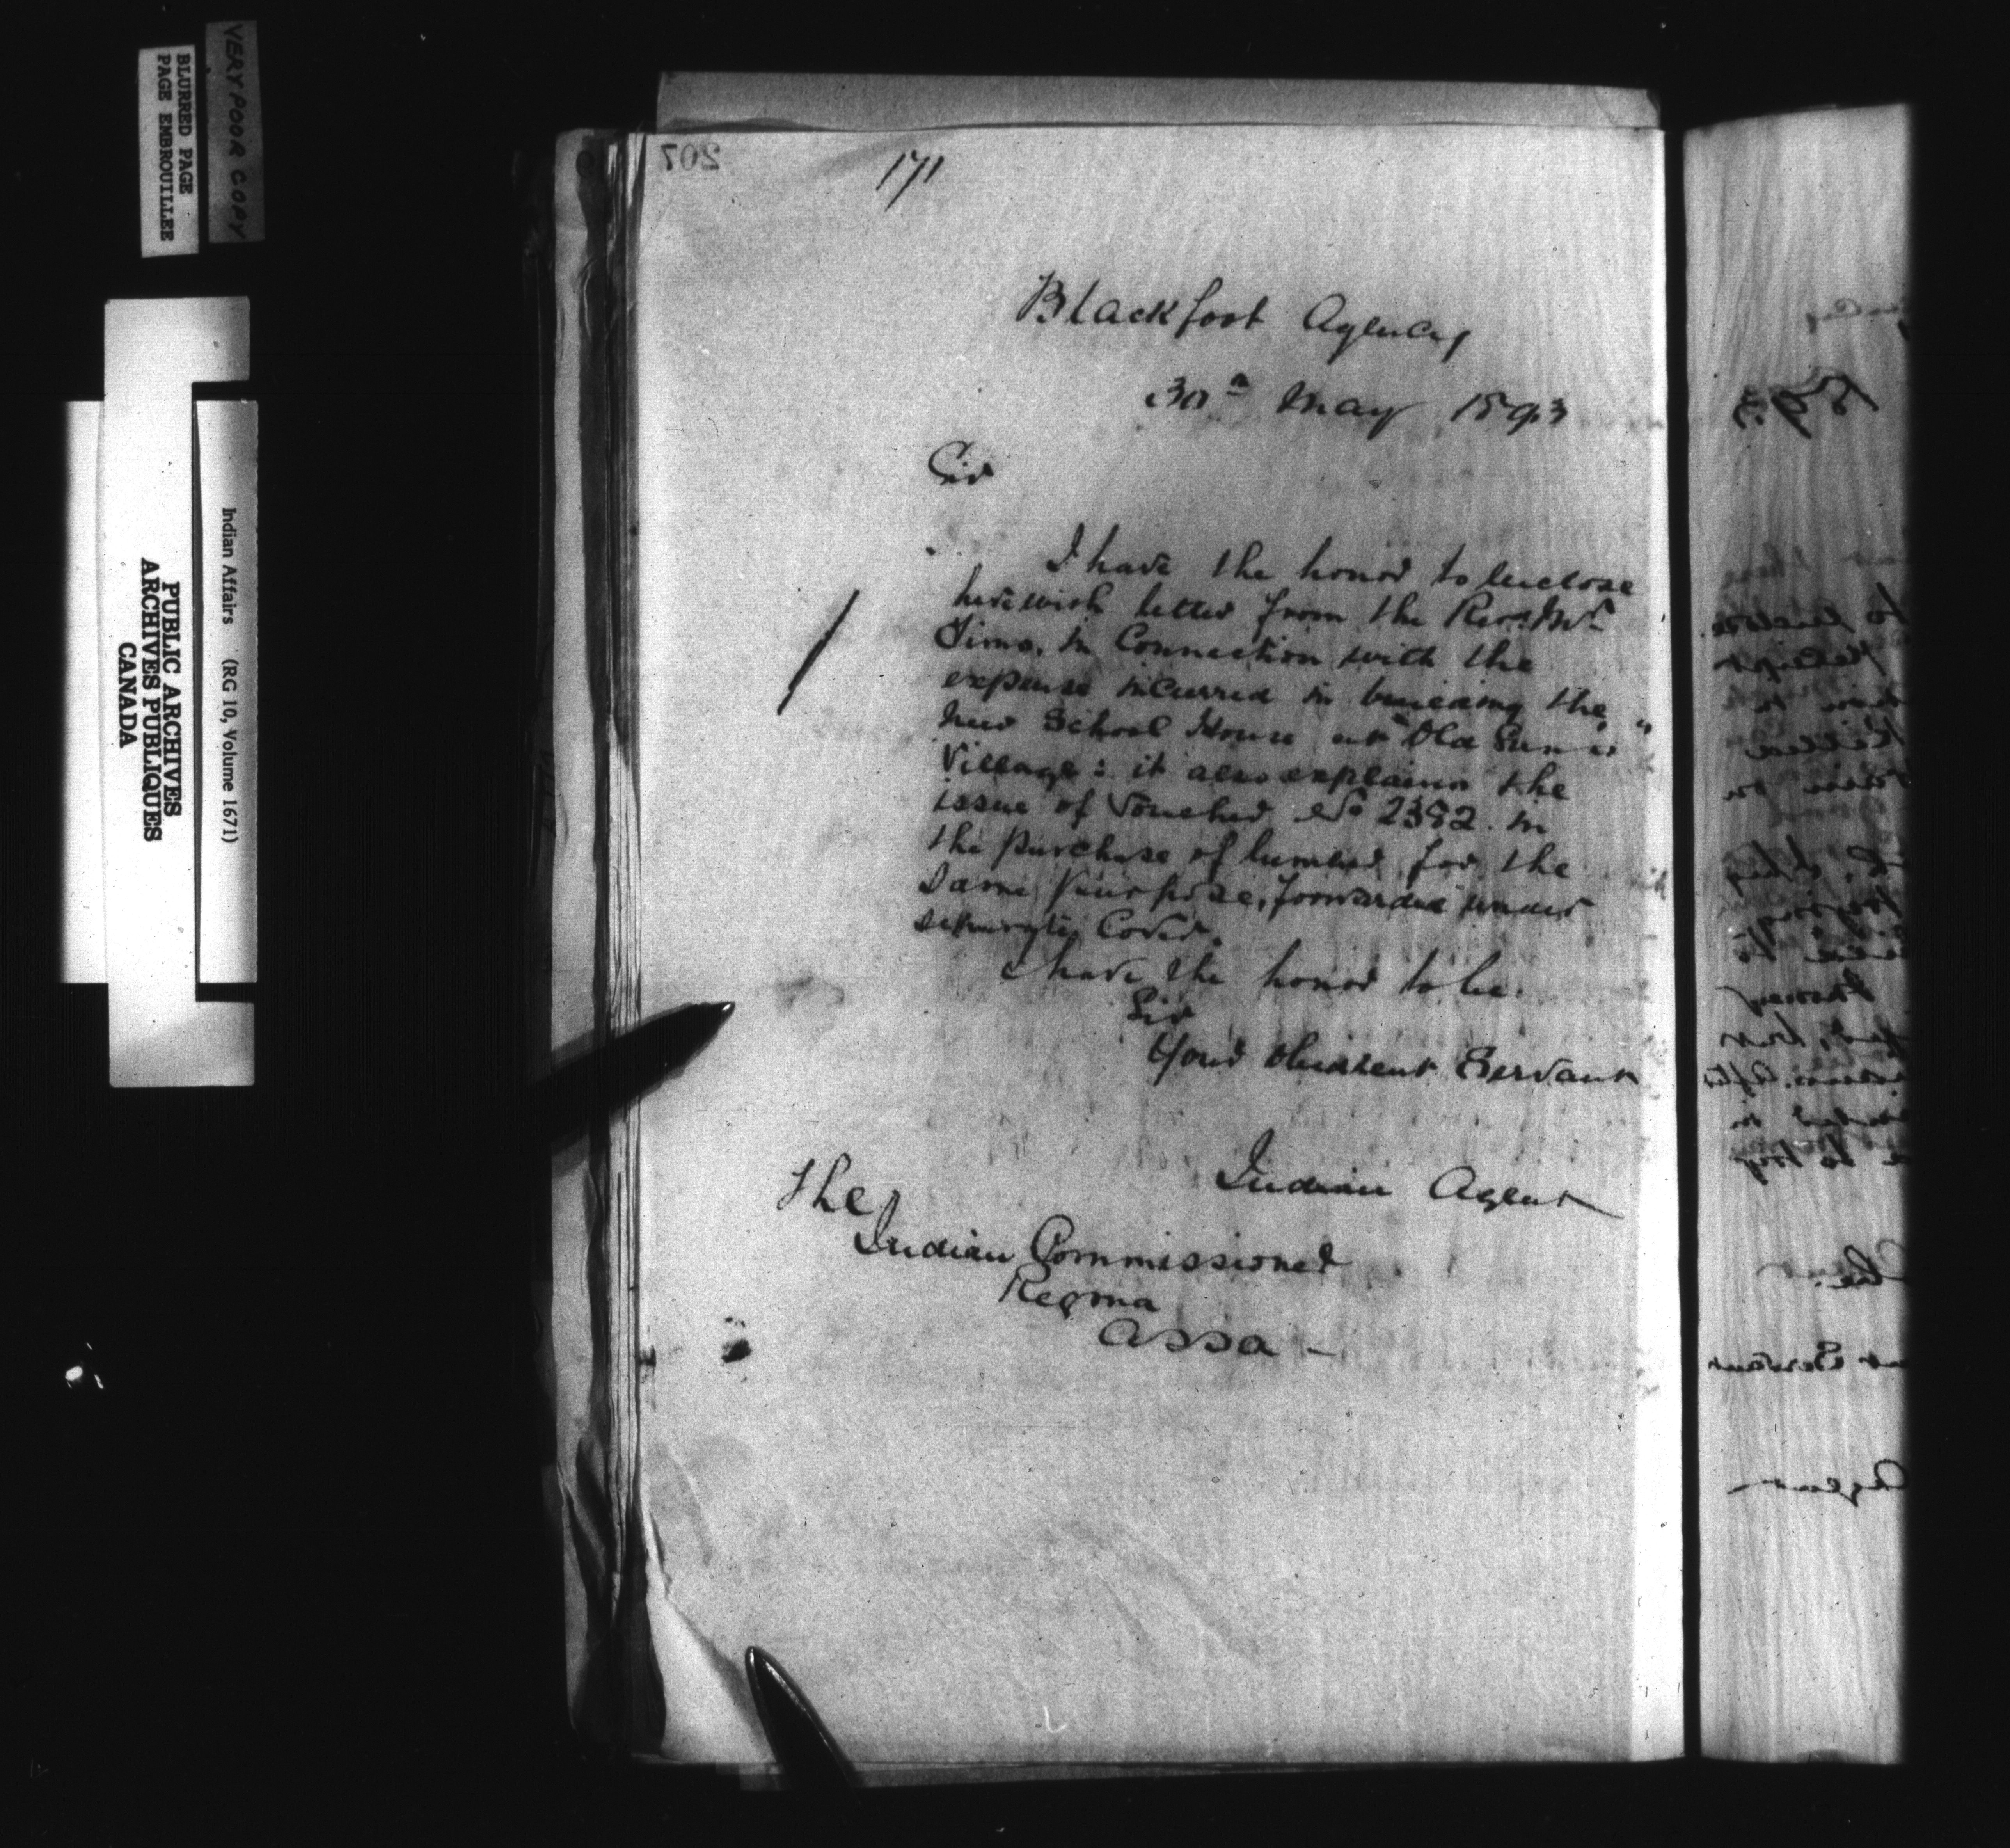 VERY POOR COPY
BLURRED PAGE
PAGE EMBROUILLEE
Indian Affairs (RG 10, Volume 1671)
PUBLIC ARCHIVES
ARCHIVES PUBLIQUES
CANADA
207
171
Blackfoot Agency
30th May 1893
Sir
I have the honor to enclose
herewith letter from the Revd Mr
Tims, in Connection with the
expense incurred in building the
new School House at "Old Sun's"
Village: it also explains the
issue of Voucher No 2382 in
the purchase of lumber for the
same purpose, forwarded under
separate Cover.
I have the honor to be.
Sir
Your obedient Servant
Indian Agent
The
Indian Commissioner
Regina
Assa -
1893
Servant
Agent